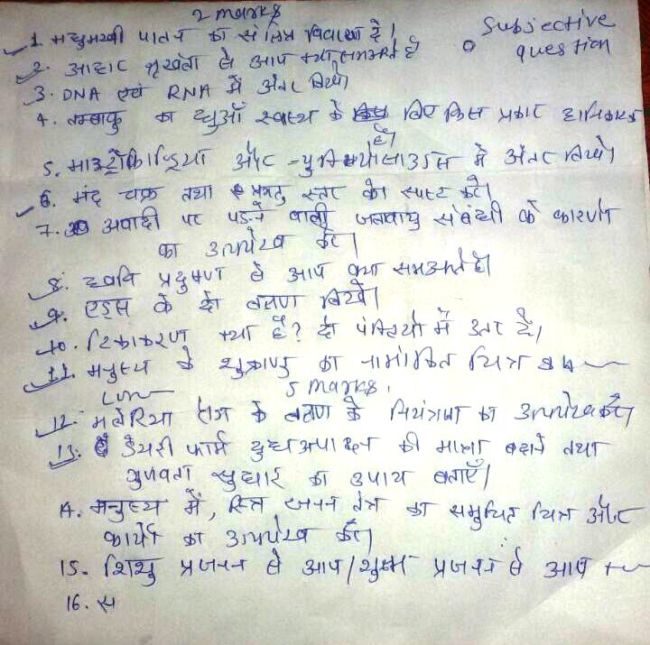 2 marks
Subjective
question
1. मधुमक्खी पालन का संक्षिप्त विवरण दें।
2. आहार श्रृंखला से आप क्या समझते हैं
3. DNA एवं RNA में अंतर लिखें।
4. तम्बाकु का धुआँ स्वास्थ्य के लिए किस प्रकार हानिकारक
है।
5. माइट्रोकॉन्ड्रिया और में अंतर लिखें।
6. चक्र तथा स्तर को स्पष्ट करें।
7. अबादी पर पड़ने वाली जलवायु संबंधी के कारणों
का उल्लेख करें।
8. ध्वनि प्रदुषण से आप क्या समझते हैं।
9. एड्स के दो लक्षण लिखें।
10. टिकाकरण क्या है? दो पंक्तियों में उत्तर दें।
11. मनुष्य के शुक्राणु का नामांकित चित्र
5 marks.
12. मलेरिया रोग के लक्षण के नियंत्रण का उल्लेख करें।
13. डेयरी फार्म दुग्ध उत्पादन की मात्रा बढ़ाने तथा
गुणवता सुधार का उपाय बताएँ।
14. मनुष्य में, जनन तंत्र का समुचित चित्र और
कार्यों का उल्लेख करें।
15. शिशु प्रजनन से आप / प्रजनन से आप
16. स